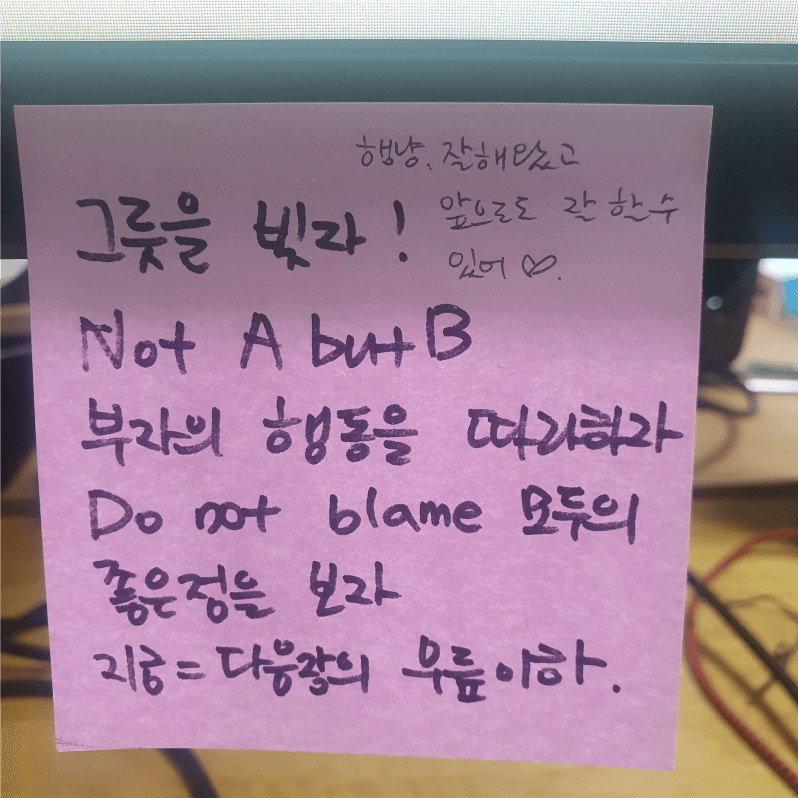 행냥. 잘해왔고
앞으로도 잘 할 수
있어 ♡.
그릇을 빚자!
Not A but B
부자의 행동을 따라하자
Do not blame 모두의
좋은점을 보자
지금 = 다음장의 무릎이하.